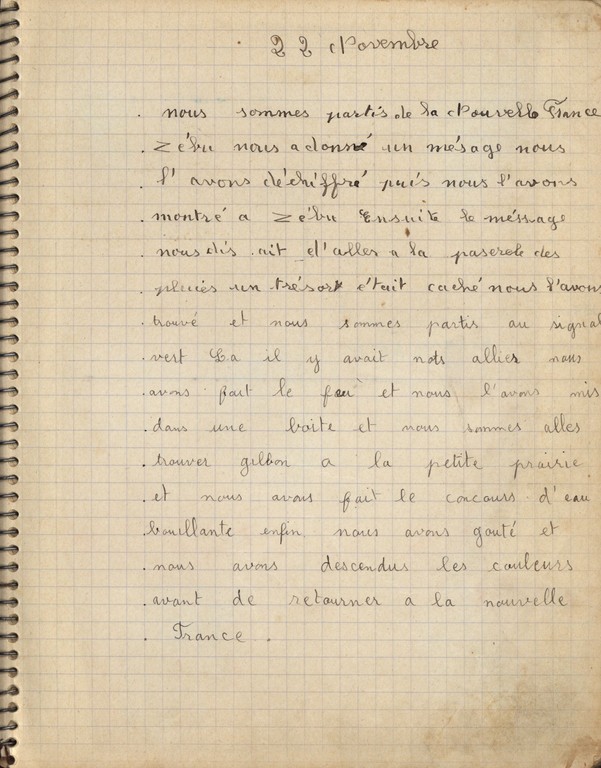 22 Novembre
. nous sommes partis de la Nouvelle France
. Zébu nous a donné un mésage nous
. l'avons déchiffré puis nous l'avons
. montré a Zébu Ensuite le méssage
. nous dis ait d'aller a la paserele des
. pluies un trésor était caché nous l'avons
. trouvé et nous sommes partis au signal
. vert La il y avait nots allier nous
. avons fait le feu et nous l'avons mis
. dans une boite et nous sommes alles
. trouver gibbon a la petite prairie
. et nous avons fait le concours d'eau
. bouillante enfin nous avons gouté et
. nous avons descendus les couleurs
. avant de retourner a la nouvelle
. France .